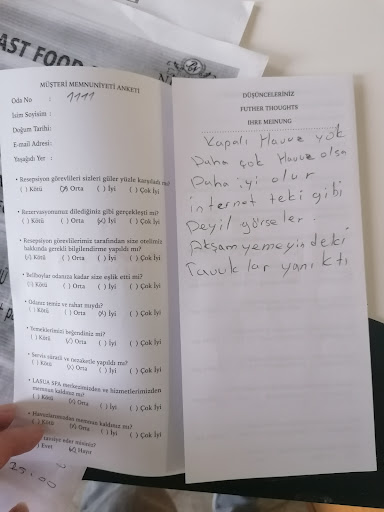 AST FOOD
MÜŞTERİ MEMNUNİYETİ ANKETİ
Oda No : 1111
İsim Soyisim :
Doğum Tarihi:
E-mail Adresi:
Yaşadığı Yer :
• Resepsiyon görevlileri sizleri güler yüzle karşıladı mı?
( ) Kötü (X) Orta ( ) İyi ( ) Çok İyi
• Rezervasyonunuz dilediğiniz gibi gerçekleşti mi?
( ) Kötü ( ) Orta (X) İyi ( ) Çok İyi
• Resepsiyon görevlilerimiz tarafından size otelimiz
hakkında gerekli bilgilendirme yapıldı mı?
(X) Kötü ( ) Orta ( ) İyi ( ) Çok İyi
• Bellboylar odanıza kadar size eşlik etti mi?
(X) Kötü ( ) Orta ( ) İyi ( ) Çok İyi
• Odanız temiz ve rahat mıydı?
( ) Kötü ( ) Orta (X) İyi ( ) Çok İyi
• Yemeklerimizi beğendiniz mi?
( ) Kötü (X) Orta ( ) İyi ( ) Çok İyi
• Servis süratli ve nezaketle yapıldı mı?
( ) Kötü (X) Orta ( ) İyi ( ) Çok İyi
• LASUA SPA merkezimizden ve hizmetlerimizden
memnun kaldınız mı?
( ) Kötü (X) Orta ( ) İyi ( ) Çok İyi
• Havuzlarımızdan memnun kaldınız mı?
( ) Kötü (X) Orta ( ) İyi ( ) Çok İyi
tavsiye eder misiniz?
) Evet (X) Hayır
DÜŞÜNCELERİNİZ
FUTHER THOUGHTS
IHRE MEINUNG
Kapalı Havuz yok
Daha çok Havuz olsa
Daha iyi olur
internet teki gibi
Deyil görseler.
Akşam yemeyindeki
Tavuk lar yanıktı